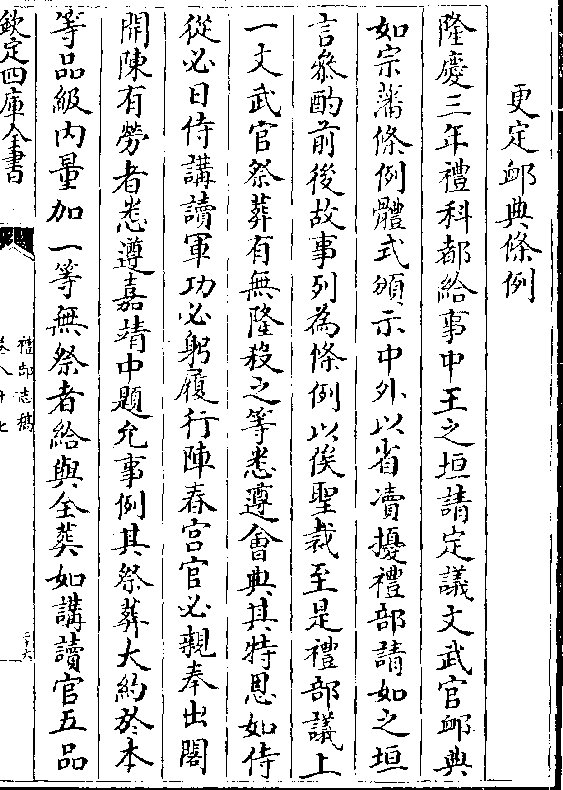 更定䘏典條例
隆慶三年禮科都給事中王之垣請定議文武官䘏典
如宗藩條例體式頒示中外以省凟擾禮部請如之垣
言叅酌前後故事列為條例以俟聖裁至是禮部議上
一文武官祭葬有無隆殺之等悉遵㑹典其特恩如侍
從必日侍講讀軍功必躬履行陣春宫官必親奉出閣
開陳有勞者悉遵嘉靖中題允事例其祭葬大約於本
等品級内量加一等無祭者給與全葬如講讀官五品
欽定四庫全書
禮部志稿
卷八十七
二十六